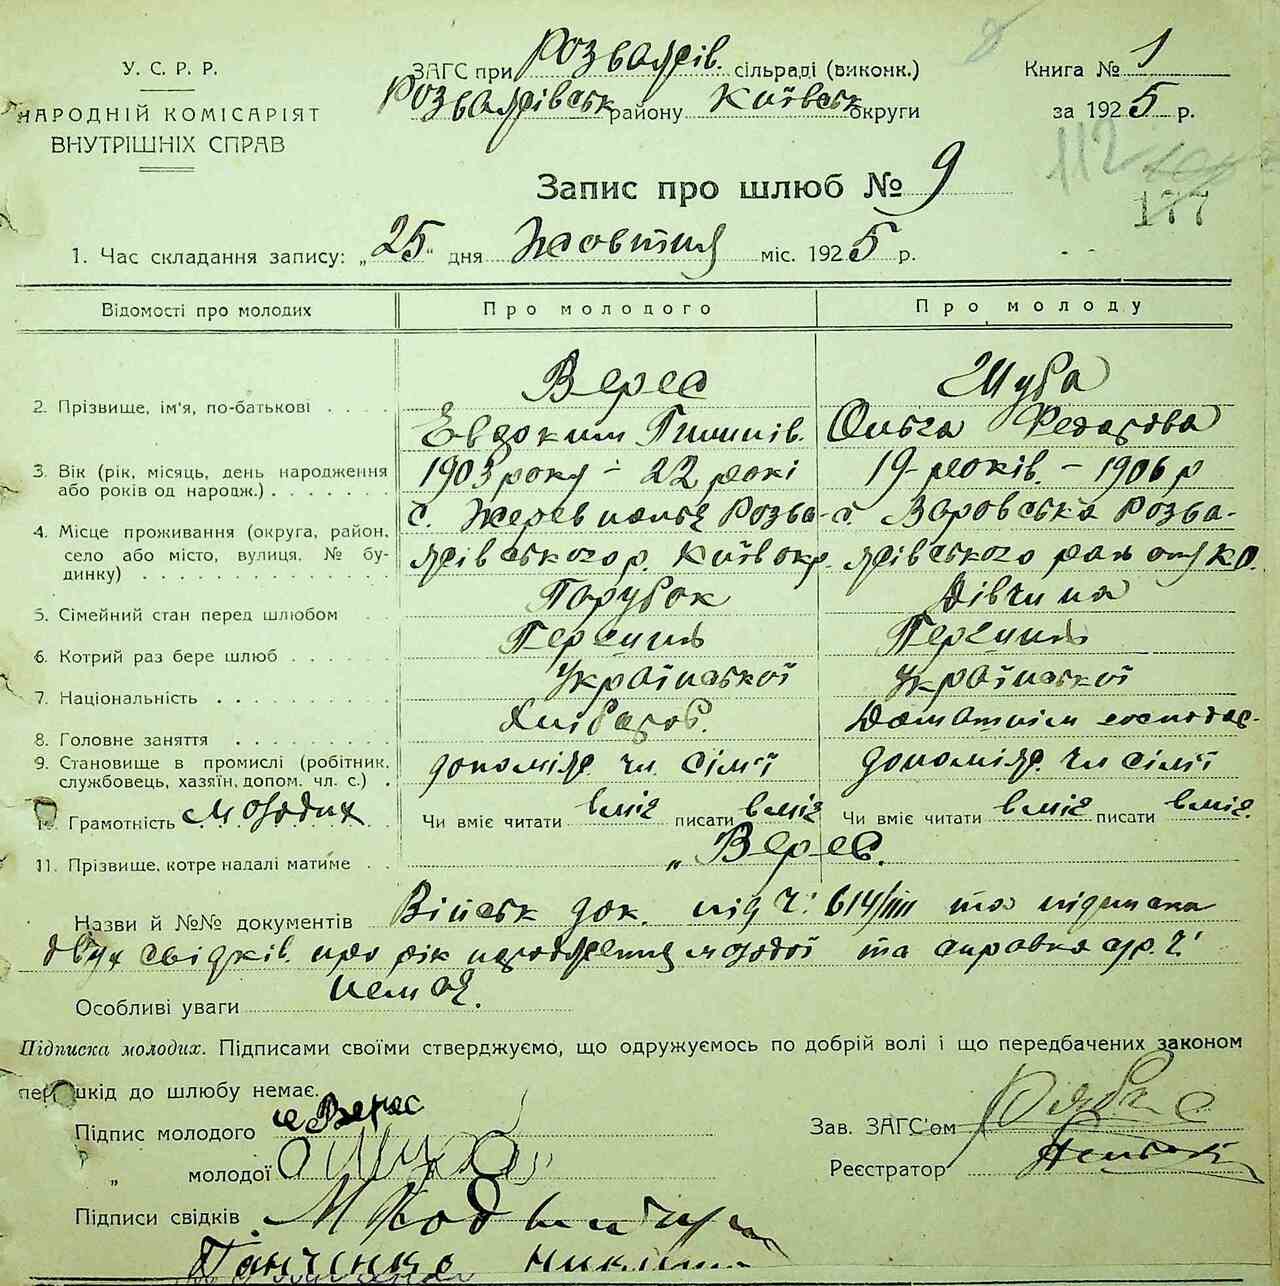 У. С. Р. Р.
НАРОДНІЙ КОМІСАРІЯТ
ВНУТРІШНІХ СПРАВ
ЗАГС при Розважів. сільраді (виконк.)
Розважівськ району Київськ округи
Книга № 1
за 1925 р.
112
177
Запис про шлюб № 9
1. Час складання запису: „25" дня Жовтня міс. 1925 р.
Відомості про молодих Про молодого Про молоду
Верес Шуба
2. Прізвище, ім'я, по-батькові Евдоким Пилипів. Ольга Федорова
3. Вік (рік, місяць, день народження 1903 року - 22 рокі 19 років. - 1906 р
або років од народж.)
4. Місце проживання (округа, район, с. Жерев Розва- с. Варовська Розва-
село або місто, вулиця. № бу- жівського р. Київ окр. жівського району К О.
динку)
5. Сімейний стан перед шлюбом Парубок Дівчина
6. Котрий раз бере шлюб Перший Перший
7. Національність Української Української
8. Головне заняття Хлібороб. Домашнім господар.
9. Становище в промислі (робітник, допоміж. чл. сімї допоміж. чл сімї
службовець, хазяїн, допом. чл. с.)
Грамотність молодих Чи вміє читати вміє писати вміє Чи вміє читати вміє писати вміє.
11. Прізвище, котре надалі матиме „Верес.
Назви й №№ документів Військ док. під Ч. 614/ та підписка
двух свідків. про рік народження молодої та справка
Особливі уваги немає.
Підписка молодих. Підписами своїми стверджуємо, що одружуємось по добрій волі і що передбачених законом
перешкід до шлюбу немає.
Підпис молодого Верес
„ молодої О Шуба
Зав. ЗАГС'ом
Реєстратор
Підписи свідків М
Панченко